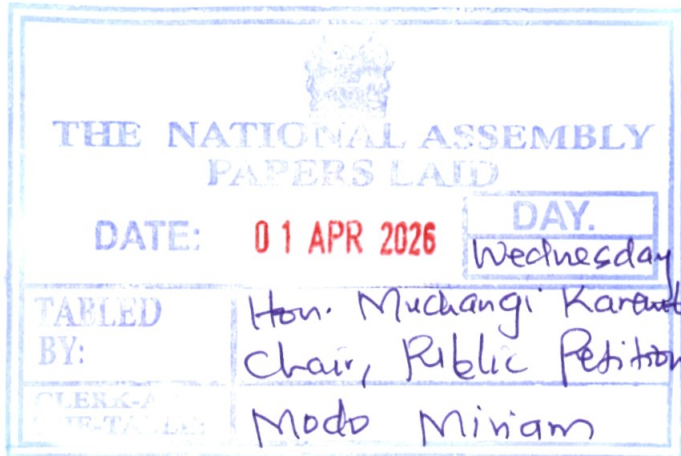 THE NATIONAL ASSEMBLY
PAPERS LAID
DATE: 01 APR 2026
DAY.
Wednesday
TABLED BY:
Hon. Muchangi
Chair, Public Petition
CLERK-A
THE-TABLE:
Modo Miriam